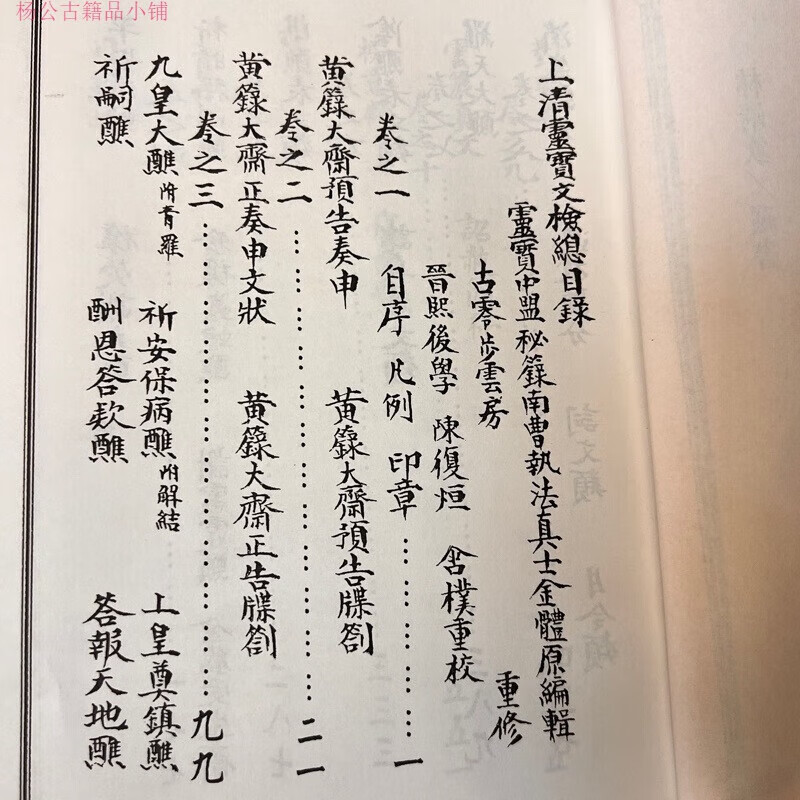 杨公古籍品小铺
上清靈寶文檢總目錄
靈寶中盟秘籙南曹執法真士金體原編輯
古零步雲房 重修
晉熙後學 陳復烜 含樸重校
自序 凡例 印章
卷之一……………………一
黄籙大齋預告奏申 黄籙大齋預告牒劄
卷之二……………………二一
黄籙大齋正奏申文狀 黄籙大齋正告牒劄
卷之三……………………九九
九皇大醮附青羅 祈安保病醮附解結 上皇奠鎮醮
祈嗣醮 酬恩答欵醮 答報天地醮